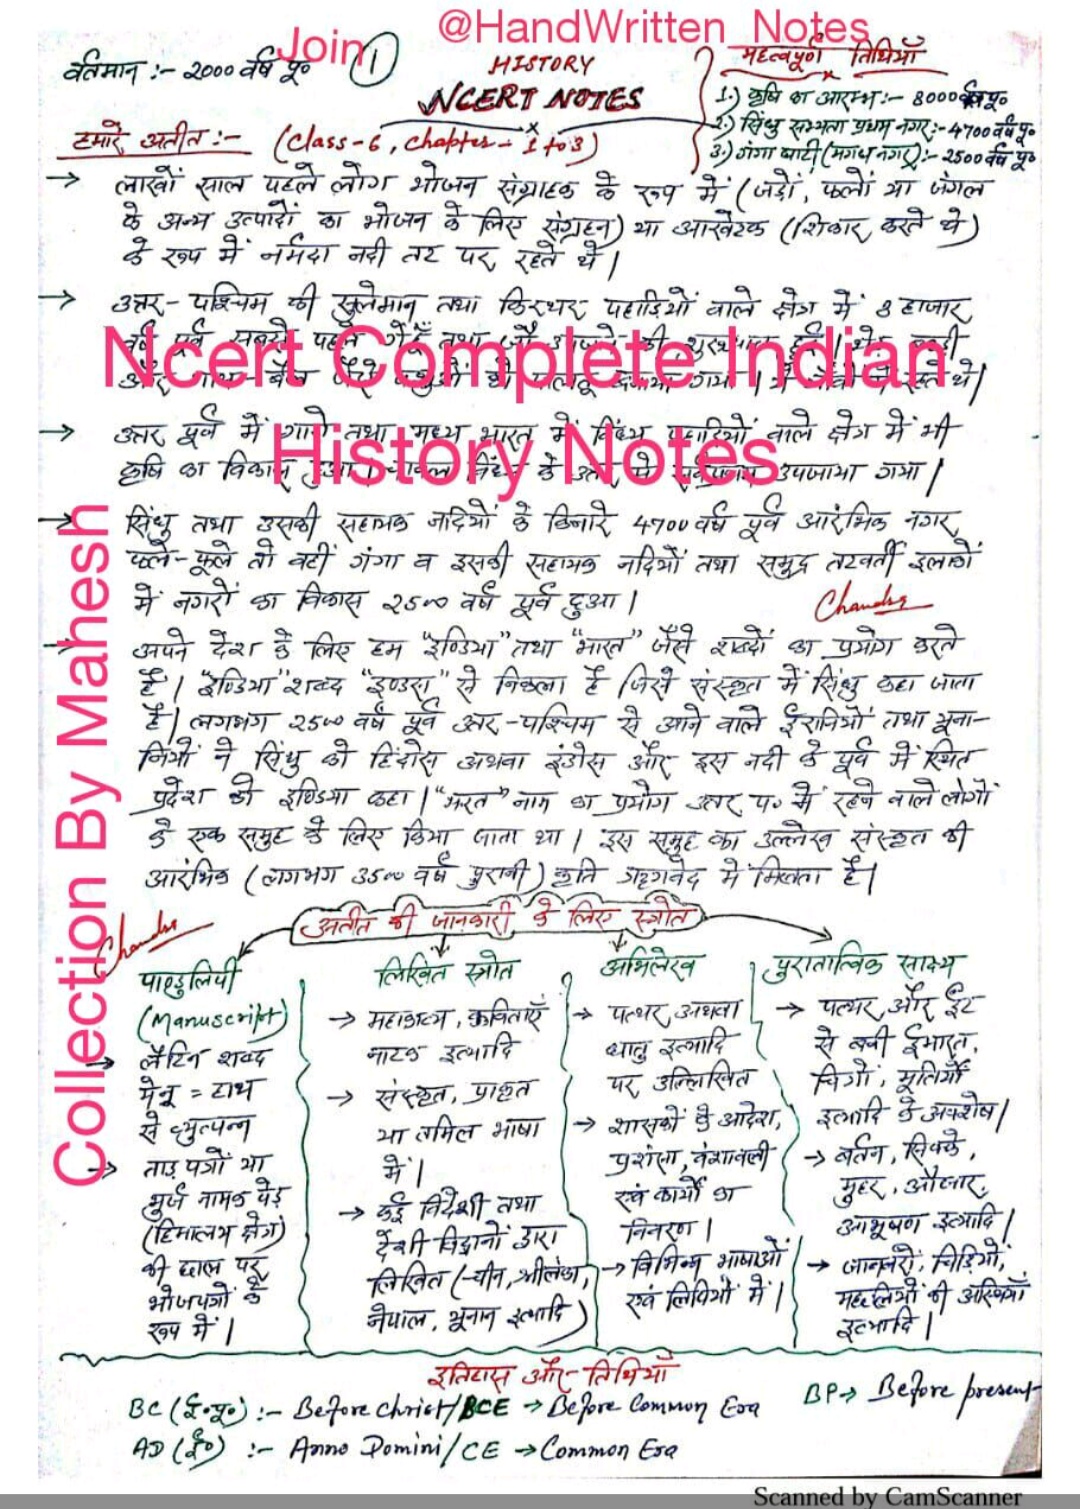 Join
@HandWritten_Notes
वर्तमान :- 2000 वर्ष पू०
1
HISTORY
NCERT NOTES
हमारे अतीत :- (Class-6, Chapter-1 to 3)
महत्वपूर्ण तिथियाँ
1.) कृषि का आरम्भ :- 8000 वर्ष पू०
2.) सिंधु सभ्यता प्रथम नगर :- 4700 वर्ष पू०
3.) गंगा घाटी (मगध नगर) :- 2500 वर्ष पू०
→ लाखों साल पहले लोग भोजन संग्राहक के रूप में (जड़ों, फलों या जंगल
के अन्य उत्पादों का भोजन के लिए संग्रहन) या आखेटक (शिकार करते थे)
के रूप में नर्मदा नदी तट पर रहते थे।
→ उत्तर-पश्चिम की सुलेमान तथा किरथर पहाडियों वाले क्षेत्र में 8 हाजार
वर्ष पूर्व सबसे पहले गेहूँ तथा
और
Ncert Complete Indian
→ उत्तर पूर्व में गारो तथा मध्य भारत में विंध्य पहाडियों वाले क्षेत्र में भी
कृषि का विकास हुआ। चावल विंध्य के उत्तर में सर्वप्रथम उपजाया गया।
History Notes
→ सिंधु तथा इसकी सहायक नदियों के किनारे 4700 वर्ष पूर्व आरंभिक नगर
फले-फूले तो वहीं गंगा व इसकी सहायक नदियों तथा समुद्र तटवर्ती इलाकों
में नगरों का विकास 2500 वर्ष पूर्व हुआ।
Chandra
→ अपने देश के लिए हम "इण्डिया" तथा "भारत" जैसे शब्दों का प्रयोग करते
हैं। "इण्डिया" शब्द "इण्डस" से निकला है जिसे संस्कृत में सिंधु कहा जाता
है। लगभग 2500 वर्ष पूर्व उत्तर-पश्चिम से आने वाले ईरानियों तथा यूना-
नियों ने सिंधु को हिंदोस अथवा इंडोस और इस नदी के पूर्व में स्थित
प्रदेश को इण्डिया कहा। "भरत" नाम का प्रयोग उत्तर प० में रहने वाले लोगों
के एक समुह के लिए किया जाता था। इस समुह का उल्लेख संस्कृत की
आरंभिक (लगभग 3500 वर्ष पुरानी) कृति ऋग्वेद में मिलता है।
Collection By Mahesh
Chandra
अतीत की जानकारी के लिए स्त्रोत
पाण्डुलिपी
(Manuscript)
→ लैटिन शब्द
मेनू = हाथ
से व्युत्पन्न
→ ताड़ पत्रों या
भुर्ज नामक पेड़
(हिमालय क्षेत्र)
की छाल पर
भोजपत्रों के
रूप में।
लिखित स्त्रोत
→ महाकाव्य, कविताएँ
नाटक इत्यादि
→ संस्कृत, प्राकृत
या तमिल भाषा
में।
→ कई विदेशी तथा
देशी विद्वानों द्वारा
लिखित (-चीन, श्रीलंका,
नेपाल, यूनान इत्यादि)
अभिलेख
→ पत्थर अथवा
धातु इत्यादि
पर उल्लिखित
→ शासकों के आदेश,
प्रशंसा, वंशावली
एवं कार्यों का
विवरण।
→ विभिन्न भाषाओं
एवं लिपियों में।
पुरातात्विक साक्ष्य
→ पत्थर और ईट
से बनी ईमारत,
चित्रों, मूर्तियाँ
इत्यादि के अवशेष।
→ बर्तन, सिक्के,
मुहर, औजार,
आभूषण इत्यादि।
→ जानवरों, चिड़ियों,
मछलियों की अस्थियाँ
इत्यादि।
इतिहास और तिथियाँ
BC (ई०पू०) :- Before Christ/BCE → Before Common Era
BP → Before present
AD (ई०) :- Anno Domini/CE → Common Era
Scanned by CamScanner